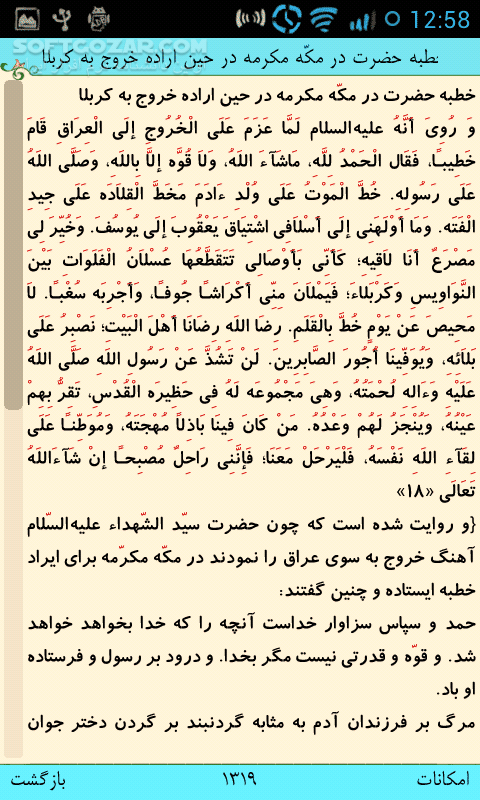 12:58
SOFTGOZAR.COM
خطبه حضرت در مکّه مکرمه در حین اراده خروج به کربلا
خطبه حضرت در مکّه مکرمه در حین اراده خروج به کربلا
وَ رُوِیَ أَنَّهُ علیه‌السلام لَمَّا عَزَمَ عَلَی الْخُرُوجِ إلَی الْعِرَاقِ قَامَ
خَطِیبـًا، فَقَال الْحَمْدُ لِلَّهِ، مَاشَآءَ اللَهُ، وَلاَ قُوَّه إلاَّ بِاللَهِ، وَصَلَّی اللَهُ
عَلَی رَسُولِهِ. خُطَّ الْمَوْتُ عَلَی وُلْدِ ءَادَمَ مَخَطَّ الْقِلاَدَه عَلَی جِیدِ
الْفَتَه. وَمَا أَوْلَهَنِی إلَی أَسْلاَفِی اشْتِیَاقَ یَعْقُوبَ إلَی یُوسُفَ. وَخُیِّرَ لِی
مَصْرَعٌ أَنَا لاَقِیهِ؛ کَأَنِّی بَأَوْصَالِی تَتَقَطَّعُهَا عُسْلاَنُ الْفَلَوَاتِ بَیْنَ
النَّوَاوِیسِ وَکَرْبَلاَءَ؛ فَیَمْلاَنَ مِنِّی أَکْرَاشـًا جُوفـًا، وَأَجْرِبَه سُغْبـًا. لاَ
مَحِیصَ عَنْ یَوْمٍ خُطَّ بِالْقَلَمِ. رِضَا اللَهِ رِضَانَا أَهْلَ الْبَیْتِ؛ نَصْبِرُ عَلَی
بَلَائِهِ، وَیُوَفِّینَا أُجُورَ الصَّابِرِینَ. لَنْ تَشُذَّ عَنْ رَسُولِ اللَهِ صَلَّی اللَهُ
عَلَیْهِ وَءَالِهِ لُحْمَتُهُ، وَهِیَ مَجْمُوعَه لَهُ فِی حَظِیرَه الْقُدْسِ، تَقَرُّ بِهِمْ
عَیْنُهُ، وَیُنْجَزُ لَهُمْ وَعْدُهُ. مَنْ کَانَ فِینَا بَاذِلاً مُهْجَتَهُ، وَمُوَطِّنـًا عَلَی
لِقَآءِ اللَهِ نَفْسَهُ، فَلْیَرْحَلْ مَعَنَا؛ فَإنَّنِی رَاحِلٌ مُصْبِحـًا إنْ شَآءَاللَهُ
تَعَالَی «۱۸»
{و روایت شده است که چون حضرت سیّد الشّهداء علیه‌السّلام
آهنگ خروج به سوی عراق را نمودند در مکّه مکرّمه برای ایراد
خطبه ایستاده و چنین گفتند:
حمد و سپاس سزاوار خداست آنچه را که خدا بخواهد خواهد
شد. و قوّه و قدرتی نیست مگر بخدا. و درود بر رسول و فرستاده
او باد.
مرگ بر فرزندان آدم به مثابه گردنبند بر گردن دختر جوان
امکانات
۱۳۱۹
بازگشت